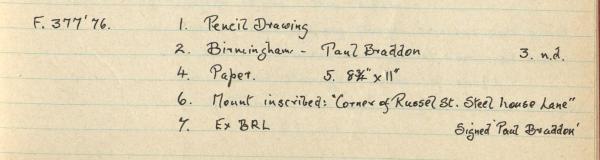 F. 377'76. 1. Pencil Drawing
2. Birmingham - Paul Braddon 3. n.d.
4. Paper. 5. 8¾" x 11"
6. Mount inscribed: "Corner of Russel St. Steel house Lane"
7. Ex BRL Signed 'Paul Braddon'